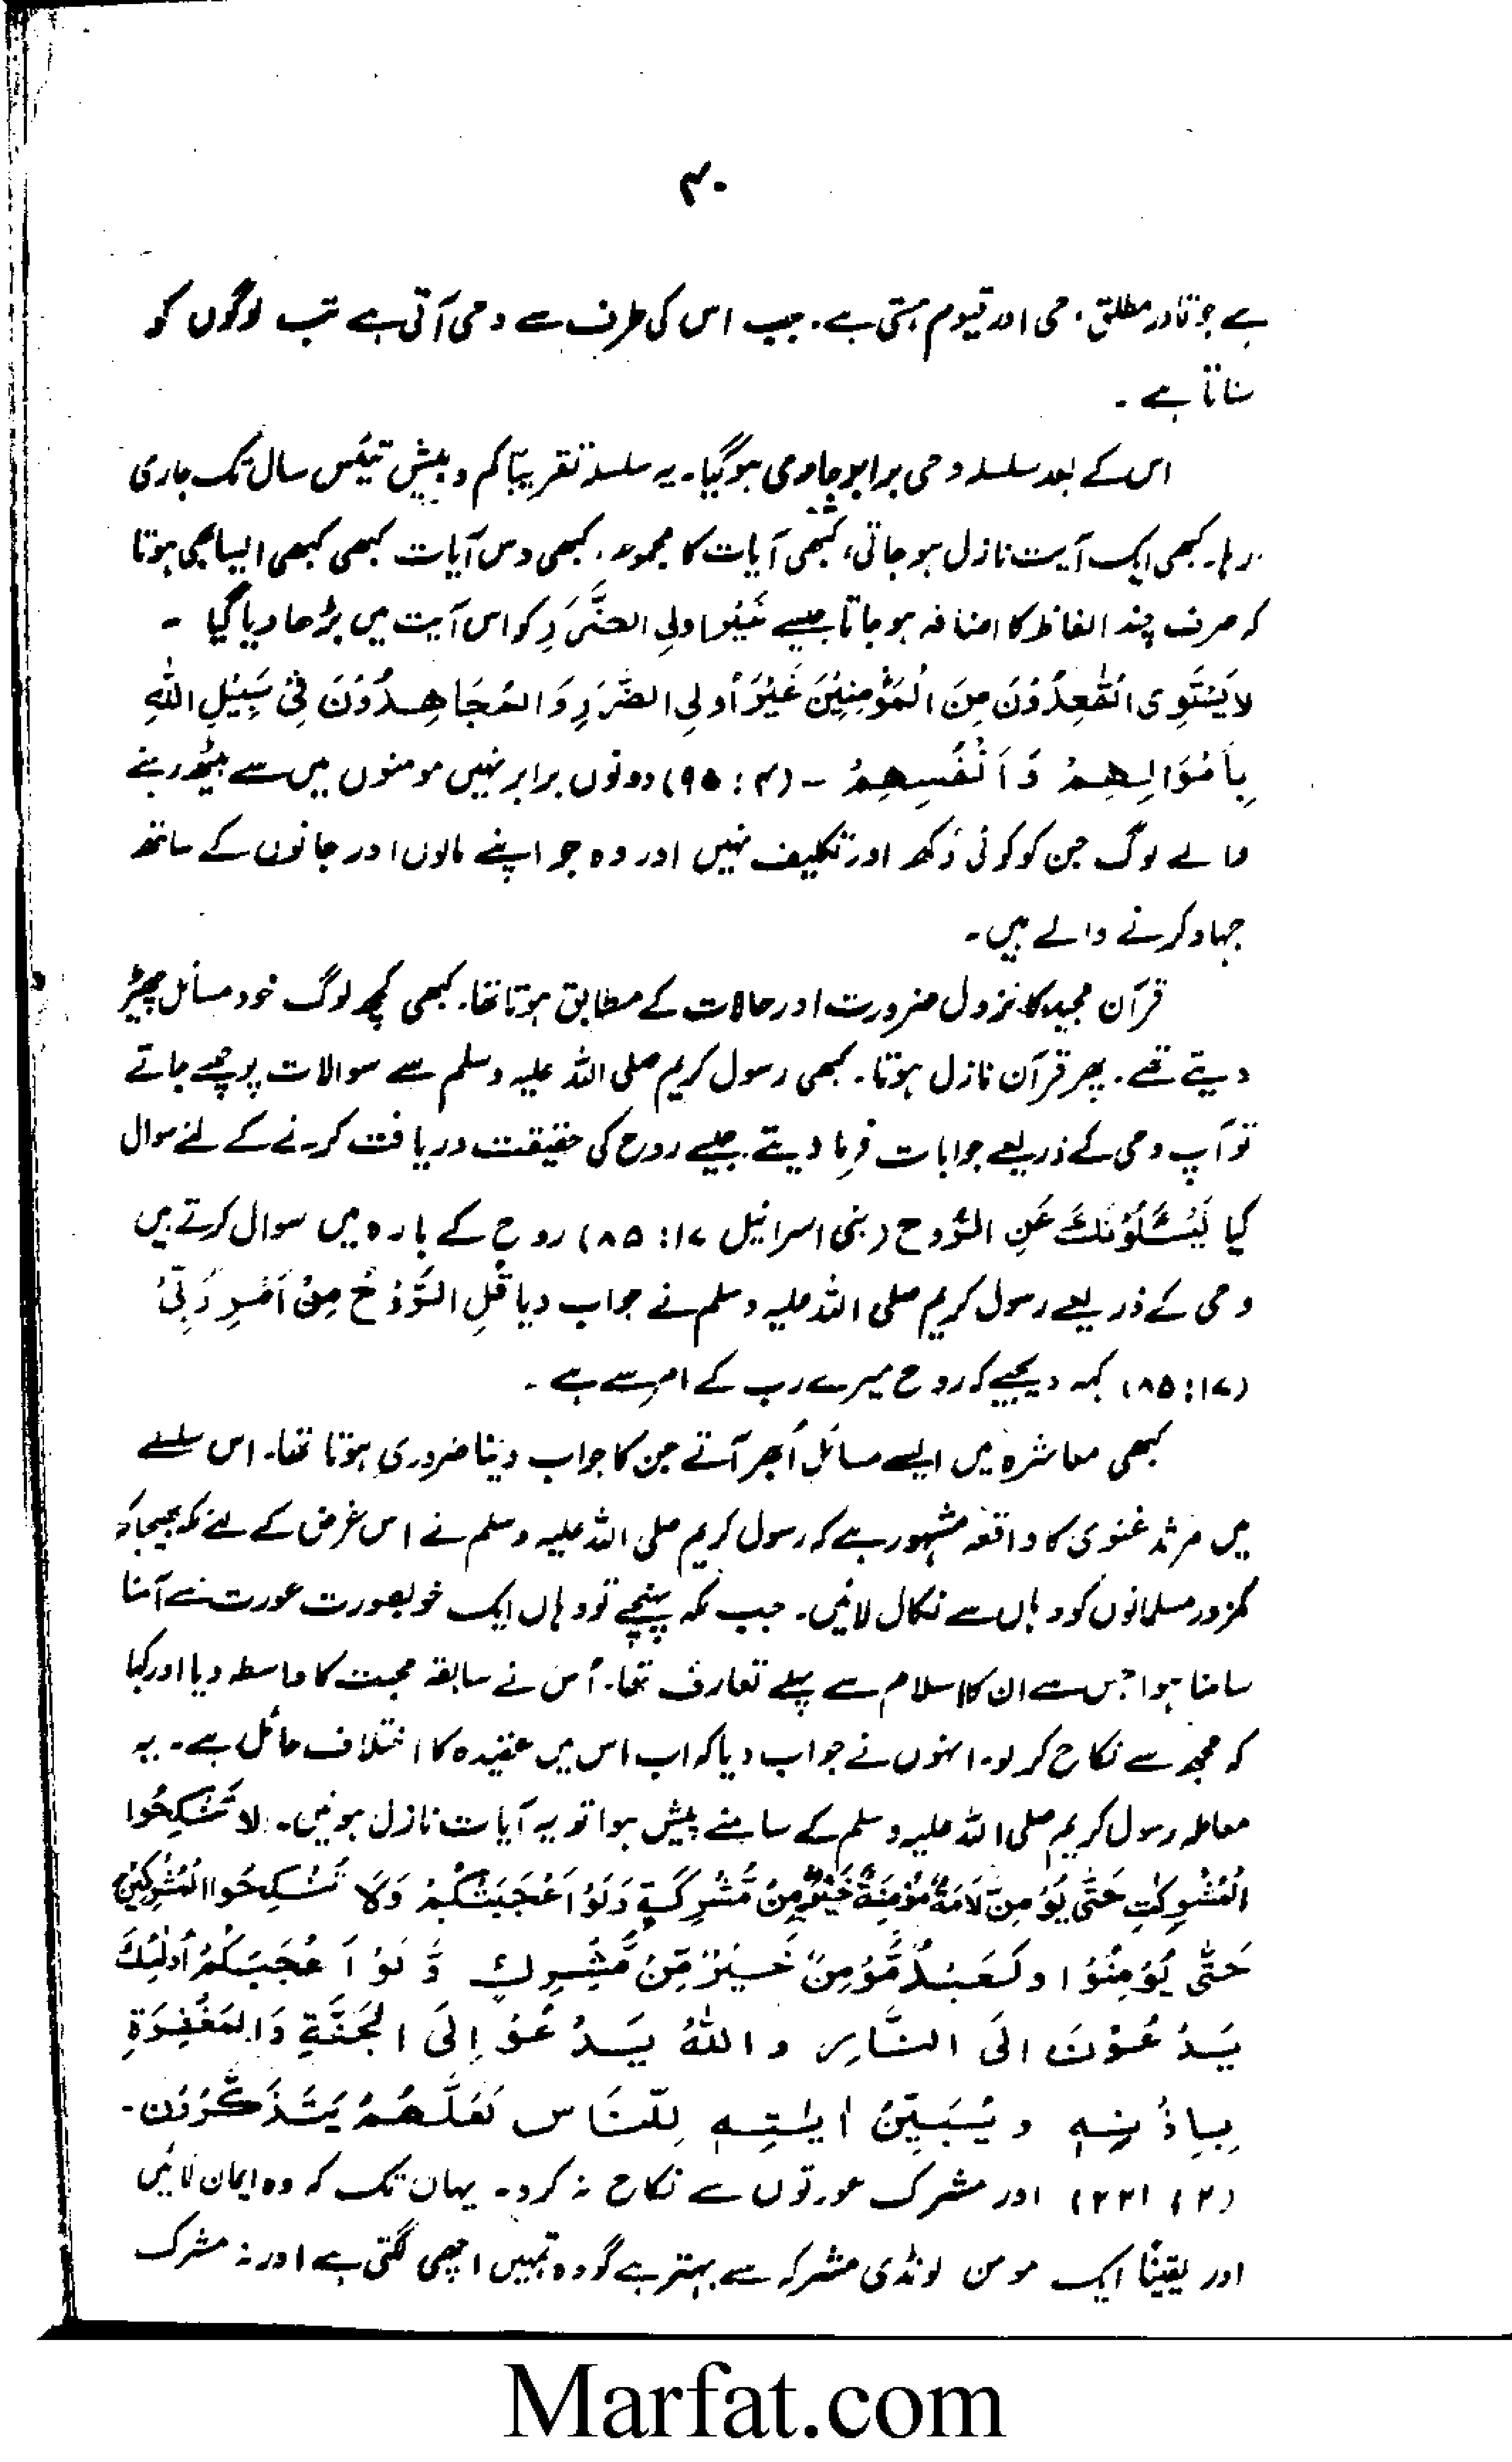 ۴۰
ہے جو قادر مطلق، حی اور قیوم ہستی ہے۔ جب اس کی طرف سے وحی آتی ہے تب لوگوں کو
سناتا ہے ۔
اس کے بعد سلسلہ وحی برابر جاری ہوگیا۔ یہ سلسلہ تقریباً کم و بیش تیئس سال تک جاری
رہا۔ کبھی ایک آیت نازل ہو جاتی، کبھی آیات کا مجموعہ، کبھی دس آیات کبھی کبھی ایسا بھی ہوتا
کہ صرف چند الفاظ کا اضافہ ہو جاتا جیسے غَیْرُ اولِی الضَّرَرِ کو اس آیت میں بڑھا دیا گیا ۔
لاَ یَسْتَوِی الْقٰعِدُوْنَ مِنَ الْمُؤْمِنِیْنَ غَیْرُ اُولِی الضَّرَرِ وَ الْمُجَاھِدُوْنَ فِیْ سَبِیْلِ اللّٰہِ
بِاَمْوَالِھِمْ وَ اَنْفُسِھِمْ ۔ (۴ : ۹۵) دونوں برابر نہیں مومنوں میں سے بیٹھ رہنے
والے لوگ جن کو کوئی دُکھ اور تکلیف نہیں اور وہ جو اپنے مالوں اور جانوں کے ساتھ
جہاد کرنے والے ہیں۔
قرآن مجید کا نزول ضرورت اور حالات کے مطابق ہوتا تھا۔ کبھی کچھ لوگ خود مسائل چھیڑ
دیتے تھے۔ پھر قرآن نازل ہوتا۔ کبھی رسول کریم صلی اللہ علیہ وسلم سے سوالات پوچھے جاتے
تو آپ وحی کے ذریعے جوابات فرما دیتے۔ جیسے روح کی حقیقت دریافت کرنے کے لئے سوال
کیا یَسْئَلُوْنَكَ عَنِ الرُّوح (بنی اسرائیل ۱۷: ۸۵) روح کے بارہ میں سوال کرتے ہیں
وحی کے ذریعے رسول کریم صلی اللہ علیہ وسلم نے جواب دیا قُلِ الرُّوْحُ مِنْ اَمْرِ رَبِّیْ
(۱۷: ۸۵) کہہ دیجیے کہ روح میرے رب کے امر سے ہے ۔
کبھی معاشرہ میں ایسے مسائل اُبھر آتے جن کا جواب دینا ضروری ہوتا تھا۔ اس سلسلے
میں مرثد غنوی کا واقعہ مشہور ہے کہ رسول کریم صلی اللہ علیہ وسلم نے اس غرض کے لئے مکہ بھیجا کہ
کمزور مسلمانوں کو وہاں سے نکال لائیں۔ جب مکہ پہنچے تو وہاں ایک خوبصورت عورت سے آمنا
سامنا ہوا جس سے ان کا اسلام سے پہلے تعارف تھا۔ اُس نے سابقہ محبت کا واسطہ دیا اور کہا
کہ مجھ سے نکاح کر لو۔ انہوں نے جواب دیا کہ اب اس میں عقیدہ کا اختلاف حائل ہے۔ یہ
معاملہ رسول کریم صلی اللہ علیہ وسلم کے سامنے پیش ہوا تو یہ آیات نازل ہوئیں۔ لَا تَنْکِحُوا
الْمُشْرِکٰتِ حَتّٰی یُؤْمِنَّ لَاَمَةٌ مُّؤْمِنَةٌ خَیْرٌ مِّنْ مُّشْرِکَةٍ وَلَوْ اَعْجَبَتْکُمْ وَلَا تُنْکِحُوا الْمُشْرِکِیْنَ
حَتّٰی یُؤْمِنُوْا و لَعَبْدٌ مُّؤْمِنٌ خَیْرٌ مِّنْ مُّشْرِكٍ وَّ لَوْ اَعْجَبَکُمْ اُولٰئِكَ
یَدْعُوْنَ اِلَی النَّارِ و اللّٰہُ یَدْعُوْ اِلَی الْجَنَّةِ وَ الْمَغْفِرَةِ
بِاِذْنِہٖ و یُبَیِّنُ اٰیٰتِہٖ لِلنَّاس لَعَلَّھُمْ یَتَذَکَّرُوْن۔
(۲ : ۲۲۱) اور مشرک عورتوں سے نکاح نہ کرو۔ یہاں تک کہ وہ ایمان لائیں
اور یقیناً ایک مومن لونڈی مشرکہ سے بہتر ہے گو وہ تمہیں اچھی لگتی ہے اور نہ مشرک
Marfat.com